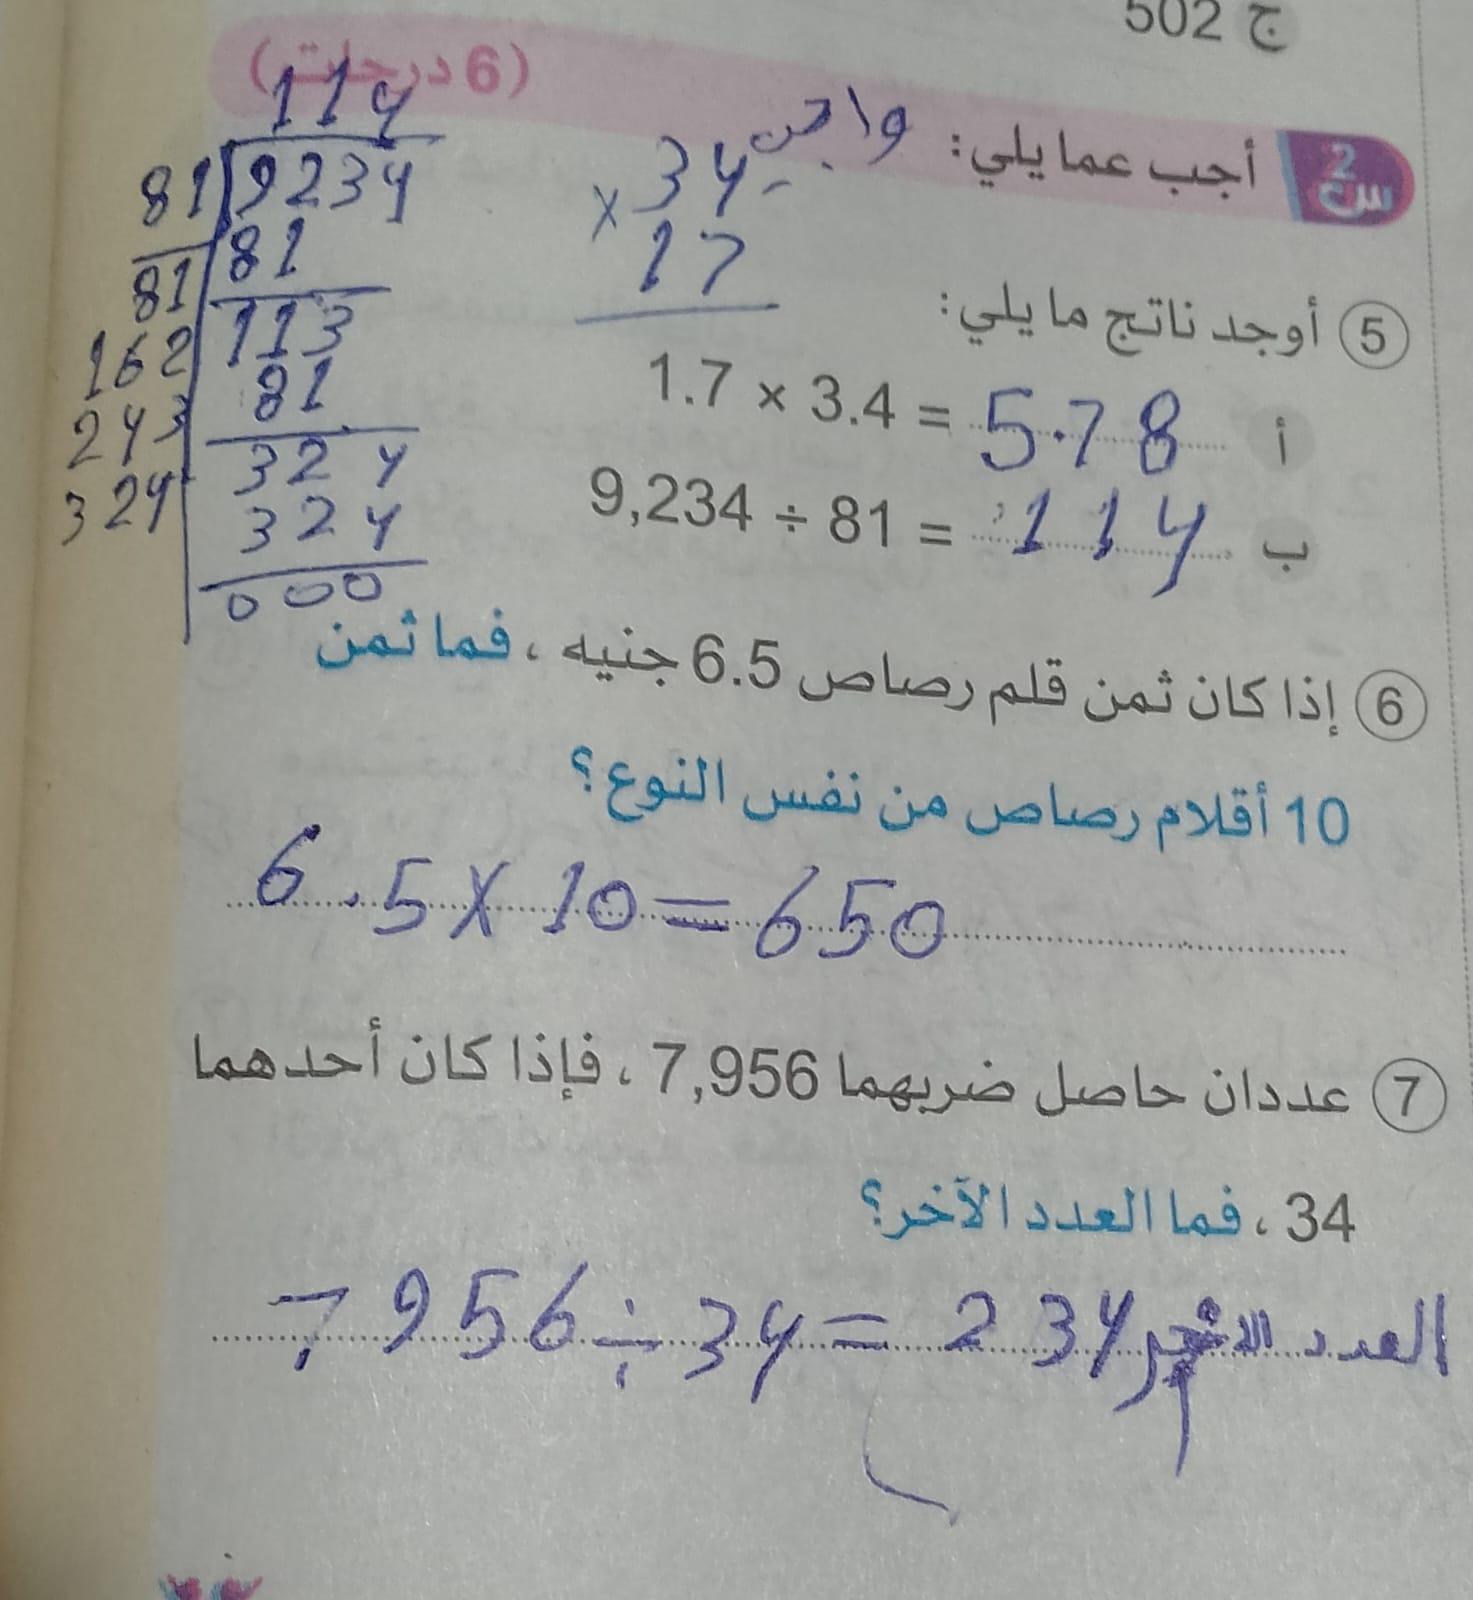 ج 502
(6 درجات)
س2 أجب عما يلي: واجب
5 أوجد ناتج ما يلي:
34
× 17
أ 1.7 × 3.4 = 5.78
ب 9,234 ÷ 81 = 114
114
81 9234
81 81
162 113
243 81
324 324
324
000
6 إذا كان ثمن قلم رصاص 6.5 جنيه ، فما ثمن
10 أقلام رصاص من نفس النوع؟
6.5 × 10 = 650
7 عددان حاصل ضربهما 7,956 ، فإذا كان أحدهما
34 ، فما العدد الآخر؟
7,956 ÷ 34 = 234 العدد الاخر